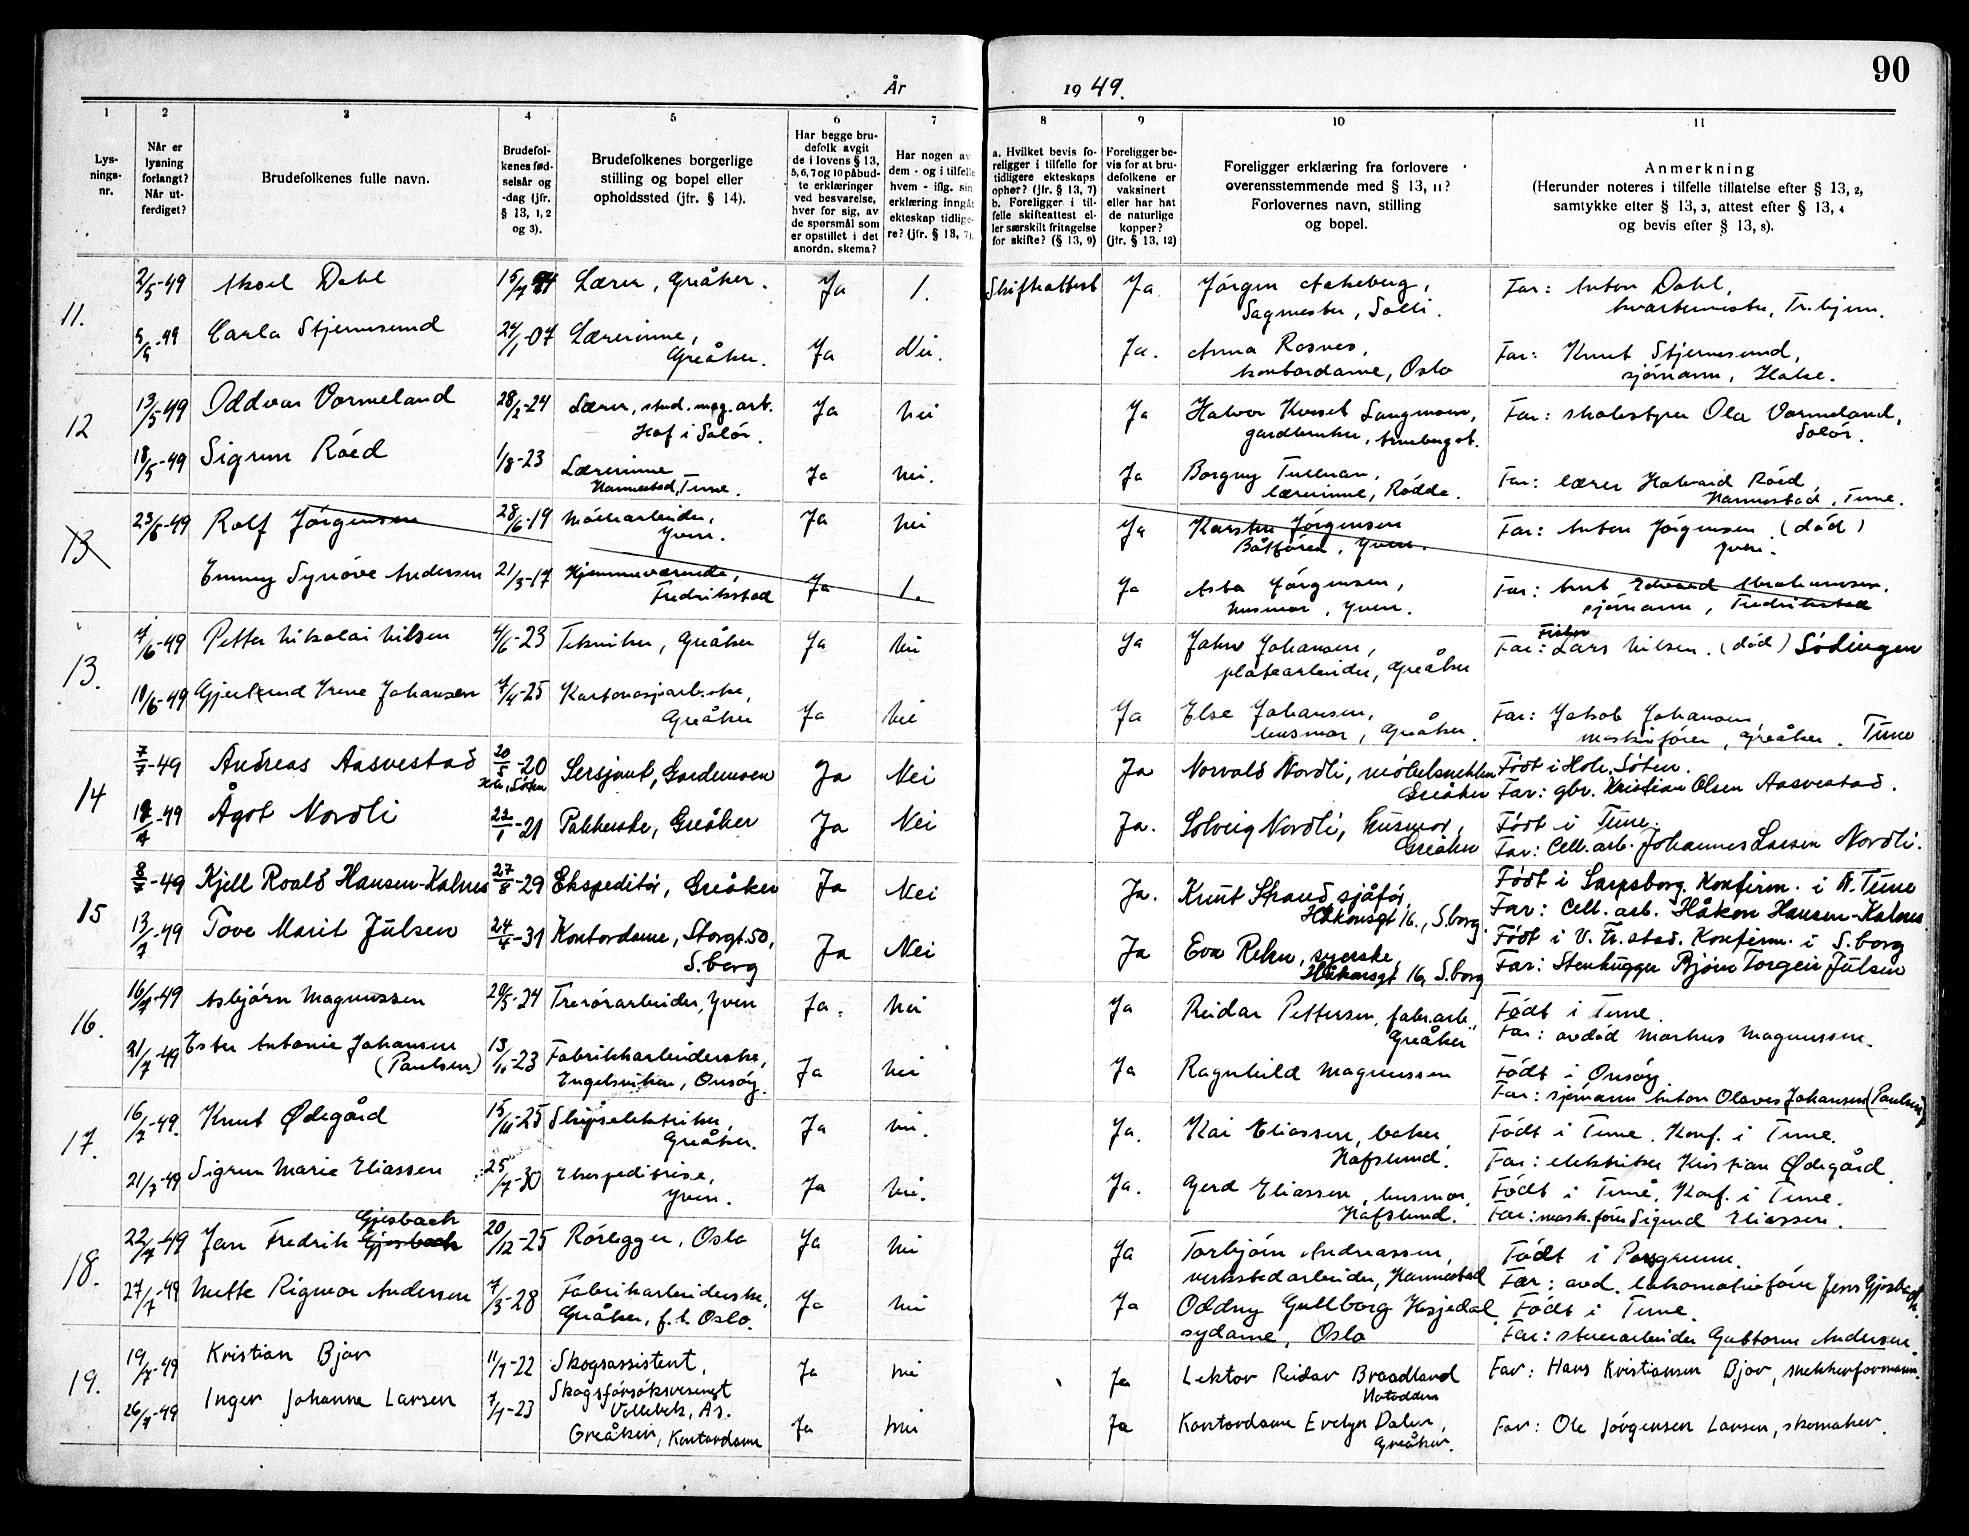 90
År 1949.
1
2
3
4
5
6
7
8
9
10
11
Lys-
nings-
nr.
Når er
lysning
forlangt?
Når ut-
ferdiget?
Brudefolkenes fulle navn.
Brudefol-
kenes fød-
selsår og
-dag (jfr.
§ 13, 1, 2
og 3).
Brudefolkenes borgerlige
stilling og bopel eller
opholdssted (jfr. § 14).
Har begge bru-
defolk avgit
de i lovens § 13,
5, 6, 7 og 10 påbud-
te erklæringer
ved besvarelse,
hver for sig, av
de spørsmål som
er opstillet i det
anordn. skema?
Har nogen av
dem - og i tilfelle
hvem - iflg. sin
erklæring inngått
ekteskap tidlige-
re? (jfr. § 13, 7).
a. Hvilket bevis fo-
religger i tilfelle for
tidligere ekteskaps
ophør? (jfr. § 13, 7)
b. Foreligger i til-
felle skifteattest el-
ler særskilt fritagelse
for skifte? (§ 13, 9)
Foreligger be-
vis for at bru-
defolkene er
vaksinert
eller har hat
de naturlige
kopper?
(jfr. § 13, 12)
Foreligger erklæring fra forlovere
overensstemmende med § 13, 11?
Forlovernes navn, stilling
og bopel.
Anmerkning
(Herunder noteres i tilfelle tillatelse efter § 13, 2,
samtykke efter § 13, 3, attest efter § 13, 4
og bevis efter § 13, 8).
11.
2/5-49 Aksel Dahl 15/7 Lærer, Greåker. Ja 1. Skifteattest Ja Jörgen Aakeberg, Far: Anton Dahl,
Sagmester, Solli. Tr.hjem.
Carla Stjernesund 24/1-07 Lærerinne, Ja Nei. Ja. Anna Rosnes, Far: Knut Stjernesund,
Greåker. kontordame, Oslo sjømann,
12
13/5-49 Oddvar Vormeland 28/2-24 Lærer, stud. mag. art. Ja Nei Ja Halvor Far: skolestyrer Ola Vormeland,
Hof i Solör. gardbruker, Solör.
18/5-49 Sigrun Röed 1/8-23 Lærerinne Ja Nei. Ja Borgny Tullnan, Far: lærer Halvard Röed,
Hannestad, Tune. lærerinne, Rödde. Hannestad, Tune.
13
23/5-49 Rolf Jörgensen 28/6-19 Möllearbeider, Ja Nei Ja Karsten Jörgensen Far: Anton Jörgensen (död)
Yven. Båtförer, Yven. Yven.
Emmy Synöve Andersen 21/3-17 Hjemmeværende, Ja 1. Ja Asta Jörgensen, Far: Edvard Abrahamsen,
Fredrikstad husmor, Yven. sjömann, Fredrikstad
13.
7/6-49 Petter Nikolai Nilsen 4/6-23 Tekniker, Greåker Ja Nei Ja Johansen, Far: Fisker Lars Nilsen. (död) Södingen
platearbeider, Greåker
11/6-49 Gjertrud Irene Johansen 7/4-25 Kartonasjearb.ske, Ja Nei Ja Else Johansen, Far: Jakob Johansen,
Greåker husmor, Greåker. maskinförer, Greåker. Tune
14
7/7-49 Andreas Aasvestad 20/5-20 Sersjant, Gardemoen Ja Nei Ja Norvald Nordli, möbelsnekker Födt i Hole, Solen.
Greåker Far: gbr. Kristian Olsen Aasvestad.
Ågot Nordli 22/1-21 Pakkerske, Greåker Ja Nei Ja. Solveig Nordli, husmor, Födt i Tune.
Greåker Far: Cell. arb. Johannes Larsen Nordli.
15
8/7-49 Kjell Roald Hansen-Kalnes 27/8-29 Ekspeditör, Greåker Ja Nei Ja. Knut Strand, sjåför, Födt i Sarpsborg. Konfirm. i N. Tune
Håkonsgt 16., S.borg. Far: Cell. arb. Håkon Hansen-Kalnes
13/7-49 Tove Marit Julsen 24/4-31 Kontordame, Storgt. 50, Ja Nei Ja Eva Rekn, syerske, Födt i V. Fr.stad. Konfirm. i S.borg
S.borg Håkonsgt 16, S.borg Far: Stenhugger Bjørn Torgeir Julsen
16.
16/7-49 Asbjörn Magnussen 20/5-24 Trevörarbeider, Yven Ja. Nei Ja Reidar Pettersen, fabr.arb., Födt i Tune.
Greåker Far: avdöd Markus Magnussen.
21/7-49 Ester Antonie Johansen 13/11-23 Fabrikkarbeiderske, Ja Nei Ja Ragnhild Magnussen Födt i Onsöy.
(Paulsen) Engelsviken, Onsöy. Far: sjömann Anton Olaves Johansen (Paulsen)
17.
16/7-49. Knut Ødegård 15/11-25 Skipselektriker, Ja Nei. Ja. Kai Eliassen, baker Födt i Tune. Konf. i Tune.
Greåker. Hafslund. Far: elektriker Kristian Ødegård.
21/7-49 Sigrun Marie Eliassen 25/7-30 Ekspeditrise, Ja Nei. Ja. Gerd Eliassen, husmor, Födt i Tune. Konf. i Tune.
Yven. Hafslund. Far: mask.förer Sigurd Eliassen.
18.
22/7-49 Jan Fredrik Gjesbach 20/12-25 Rörlegger, Oslo Ja Nei Ja Torbjörn Andreassen, Födt i Porsgrunn.
verkstedarbeider, Hannestad Far: avd. lokomotivförer Jens Gjesbach.
27/7-49 Mette Rigmor Andersen 7/3-28 Fabrikarbeiderske, Ja Nei Ja Oddny Gullborg Hesjedal Födt i Tune.
Greåker, f.t. Oslo. sydame, Oslo Far: stuerarbeider Guttorm Andersen.
19.
19/7-49 Kristian Bjor 11/7-22 Skogsassistent, Ja Nei Ja Lektor Reidar Braadland Far: Hans Kristiansen Bjor, snekkerformann.
Skogsforsöksvesenet Notodden
Vollebekk, Ås.
26/7-49 Inger Johanne Larsen 7/7-23 Greåker, Kontordame Ja Nei Ja Kontordame Evelyn Dalen, Far: Ole Jörgensen Larsen, skomaker.
Greåker.